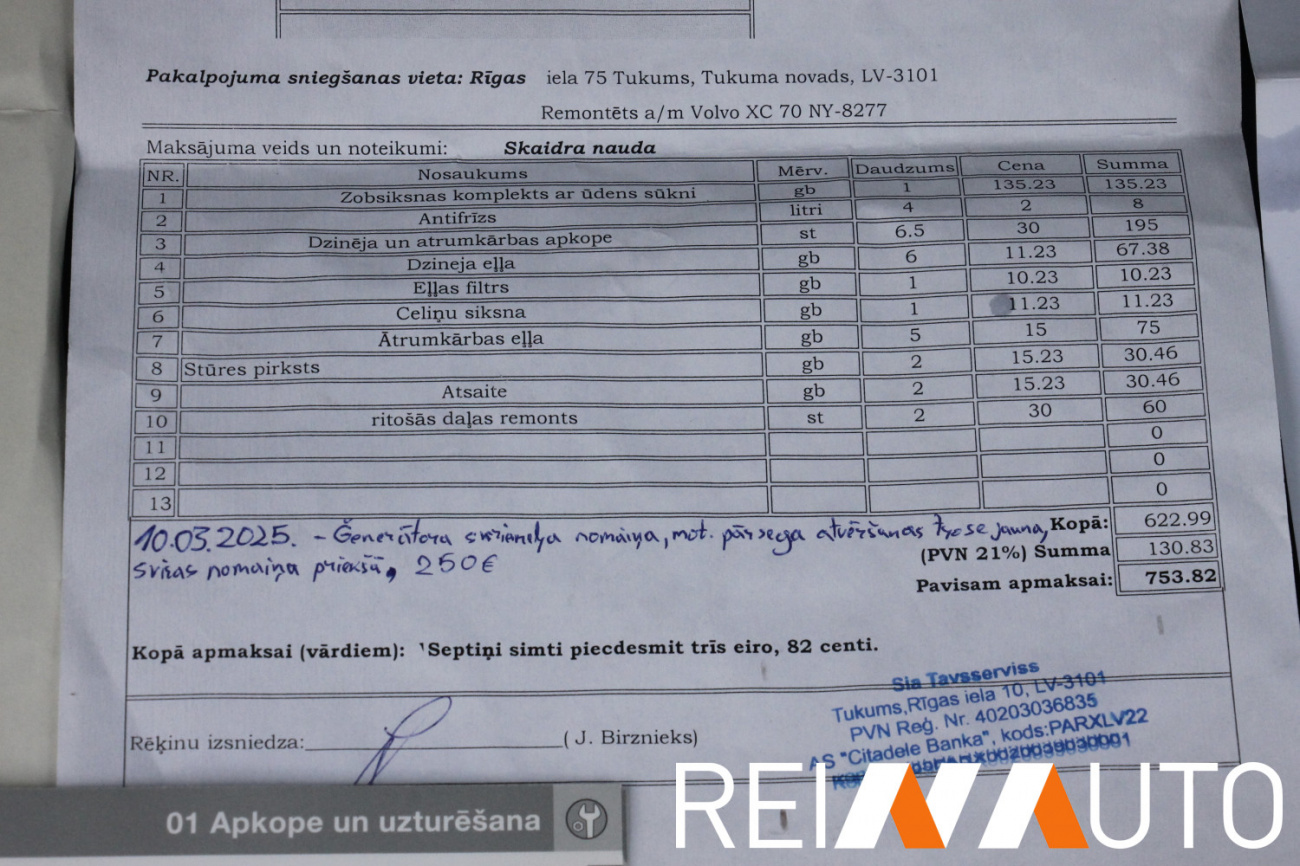 Pakalpojuma sniegšanas vieta: Rīgas iela 75 Tukums, Tukuma novads, LV-3101
Remontēts a/m Volvo XC 70 NY-8277
Maksājuma veids un noteikumi: Skaidra nauda
NR. Nosaukums Mērv. Daudzums Cena Summa
1 Zobsiksnas komplekts ar ūdens sūkni gb 1 135.23 135.23
2 Antifrīzs litri 4 2 8
3 Dzinēja un atrumkārbas apkope st 6.5 30 195
4 Dzineja eļļa gb 6 11.23 67.38
5 Eļļas filtrs gb 1 10.23 10.23
6 Celiņu siksna gb 1 11.23 11.23
7 Ātrumkārbas eļļa gb 5 15 75
8 Stūres pirksts gb 2 15.23 30.46
9 Atsaite gb 2 15.23 30.46
10 ritošās daļas remonts st 2 30 60
11 0
12 0
13 0
Kopā: 622.99
(PVN 21%) Summa 130.83
Pavisam apmaksai: 753.82
10.03.2025. - Ģeneratora skriemeļa nomaiņa, mot. pārsega atvēršanas jauna,
nomaiņa priekšā, 250€
Kopā apmaksai (vārdiem): 'Septiņi simti piecdesmit trīs eiro, 82 centi.
Rēķinu izsniedza: ( J. Birznieks)
Sia Tavsserviss
Tukums,Rīgas iela 10, LV-3101
PVN Reģ. Nr. 40203036835
AS "Citadele Banka", kods:PARXLV22
01 Apkope un uzturēšana
REINAUTO